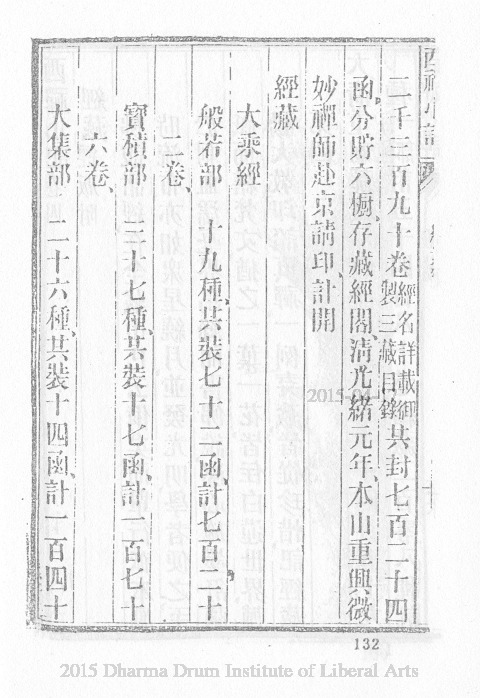 二千三百九十卷經名詳載御製三藏目錄共封七百二十四
函、分貯六櫥存藏經閣、清光緒元年、本山重興微
妙禪師赴京請印、計開
經藏
大乘經
般若部 十九種、共裝七十二函、計七百二十
二卷、
寶積部 三十七種、共裝十七函、計一百七十
六卷、
大集部 二十六種、共裝十四函、計一百四十
132
2015 Dharma Drum Institute of Liberal Arts